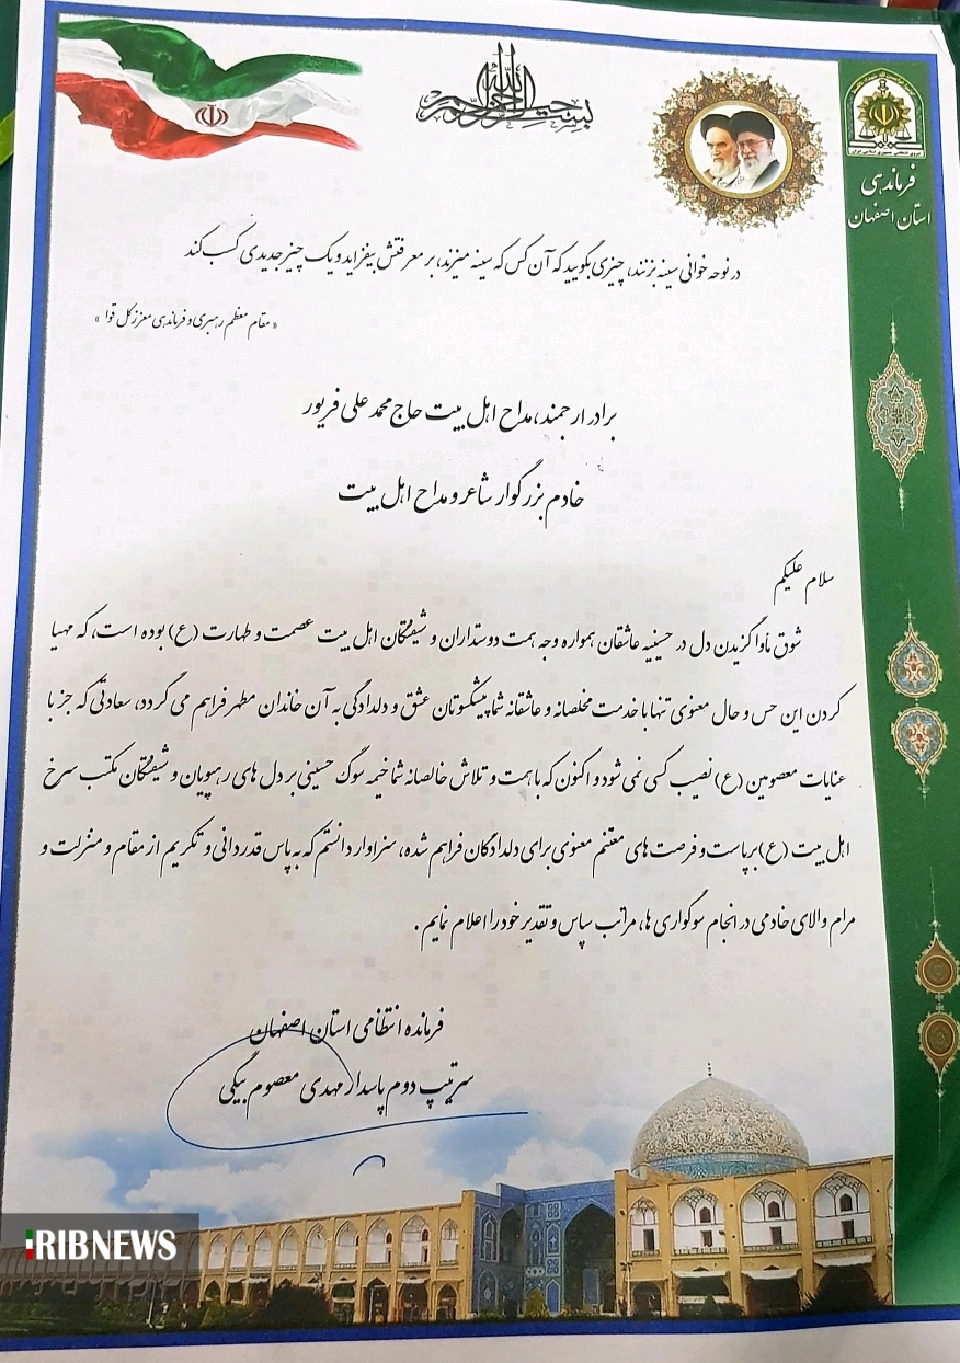 بسم الله الرحمن الرحیم
فرماندهی
استان اصفهان
در نوحه خوانی سینه بزنند، چیزی بگویید که آن کس که سینه میزند، بر معرفتش بیفزاید و یک چیز جدیدی کسب کند
« مقام معظم رهبری و فرماندهی معزز کل قوا »
برادر ارجمند، مداح اهل بیت حاج محمد علی فریور
خادم بزرگوار شاعر و مداح اهل بیت
سلام علیکم
شوق مأوا گزیدن دل در حسینیه عاشقان همواره وجه همت دوستداران و شیفتگان اهل بیت عصمت و طهارت (ع) بوده است، که مهیا
کردن این حس و حال معنوی تنها با خدمت مخلصانه و عاشقانه شما پیشکسوتان عشق و دلدادگی به آن خاندان مطهر فراهم می گردد، سعادتی که جز با
عنایات معصومین (ع) نصیب کسی نمی شود و اکنون که با همت و تلاش خالصانه شما خیمه سوگ حسینی بر دل های رهپویان و شیفتگان مکتب سرخ
اهل بیت (ع) برپاست و فرصت های مغتنم معنوی برای دلدادگان فراهم شده، سزاوار دانستم که به پاس قدردانی و تکریم از مقام و منزلت و
مرام والای خادمی در انجام سوگواری ها، مراتب سپاس و تقدیر خود را اعلام نمایم .
فرمانده انتظامی استان اصفهان
سرتیپ دوم پاسدار مهدی معصوم بیگی
IRIBNEWS